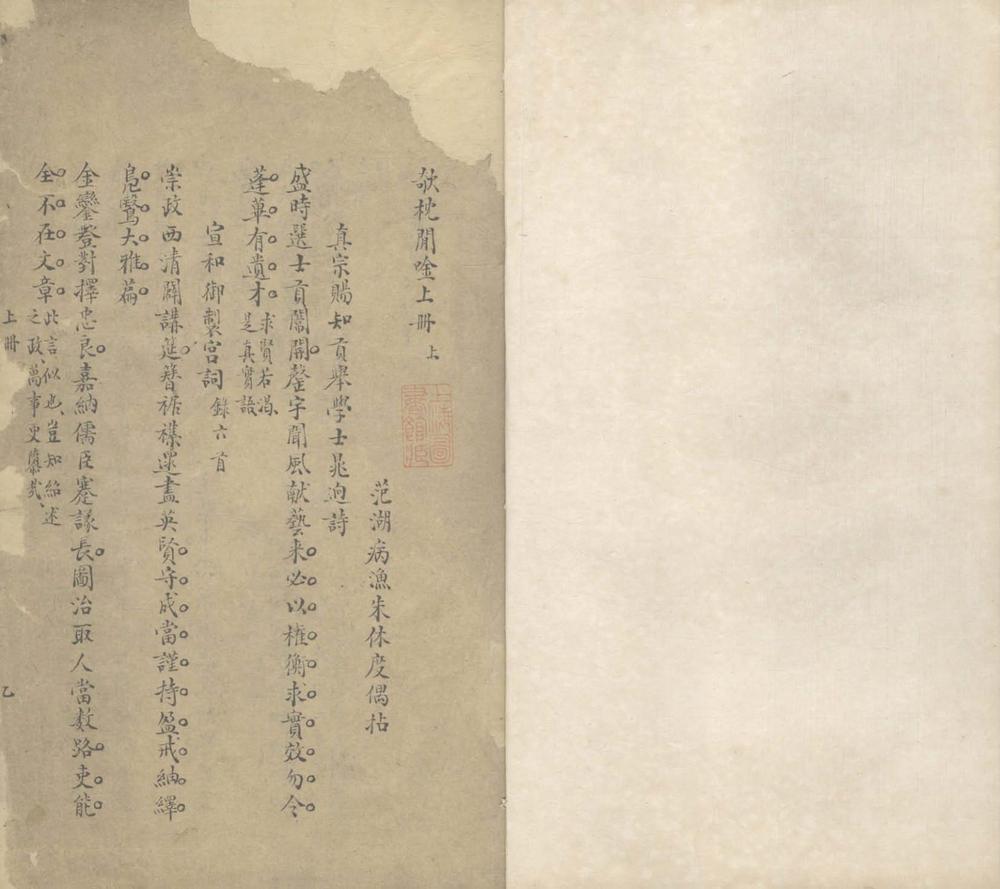 欹枕閒唫上冊 上
上海圖書館藏
范湖病漁朱休度偶拈
真宗賜知貢舉學士晁迥詩
盛時選士貢闈開罄宇聞風献藝来必以權衡求實效勿令
蓬蓽有遺才求賢若渴是真實語
宣和御製宮詞 錄六首
崇政西清闢講筵簪裾襟選盡英賢守成當謹持盈戒紬繹
鳧鷖大雅篇
金鑾登對擇忠良嘉納儒臣蹇諤長圖治取人當数路吏能
全不在文章此言似也豈知紹述之政萬事更隳哉
上冊
乙